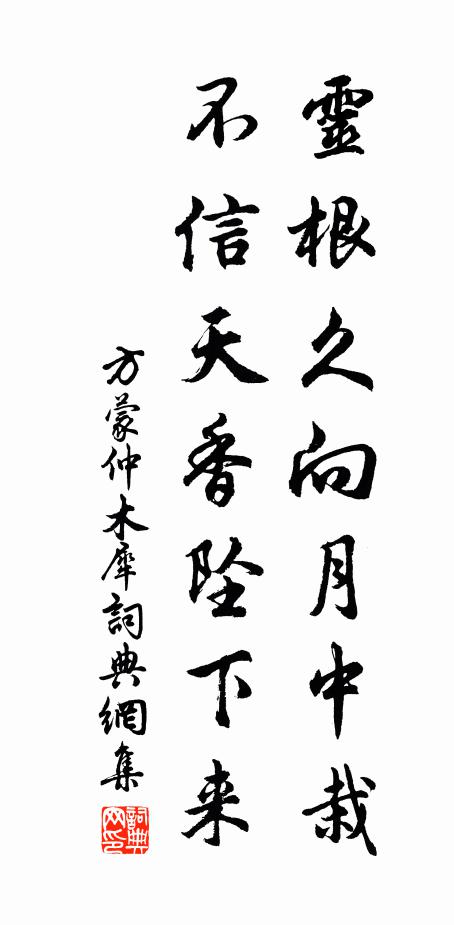 靈根久向月中栽
不信天香坠下来
方蒙仲木犀詞典網集
詞典网印